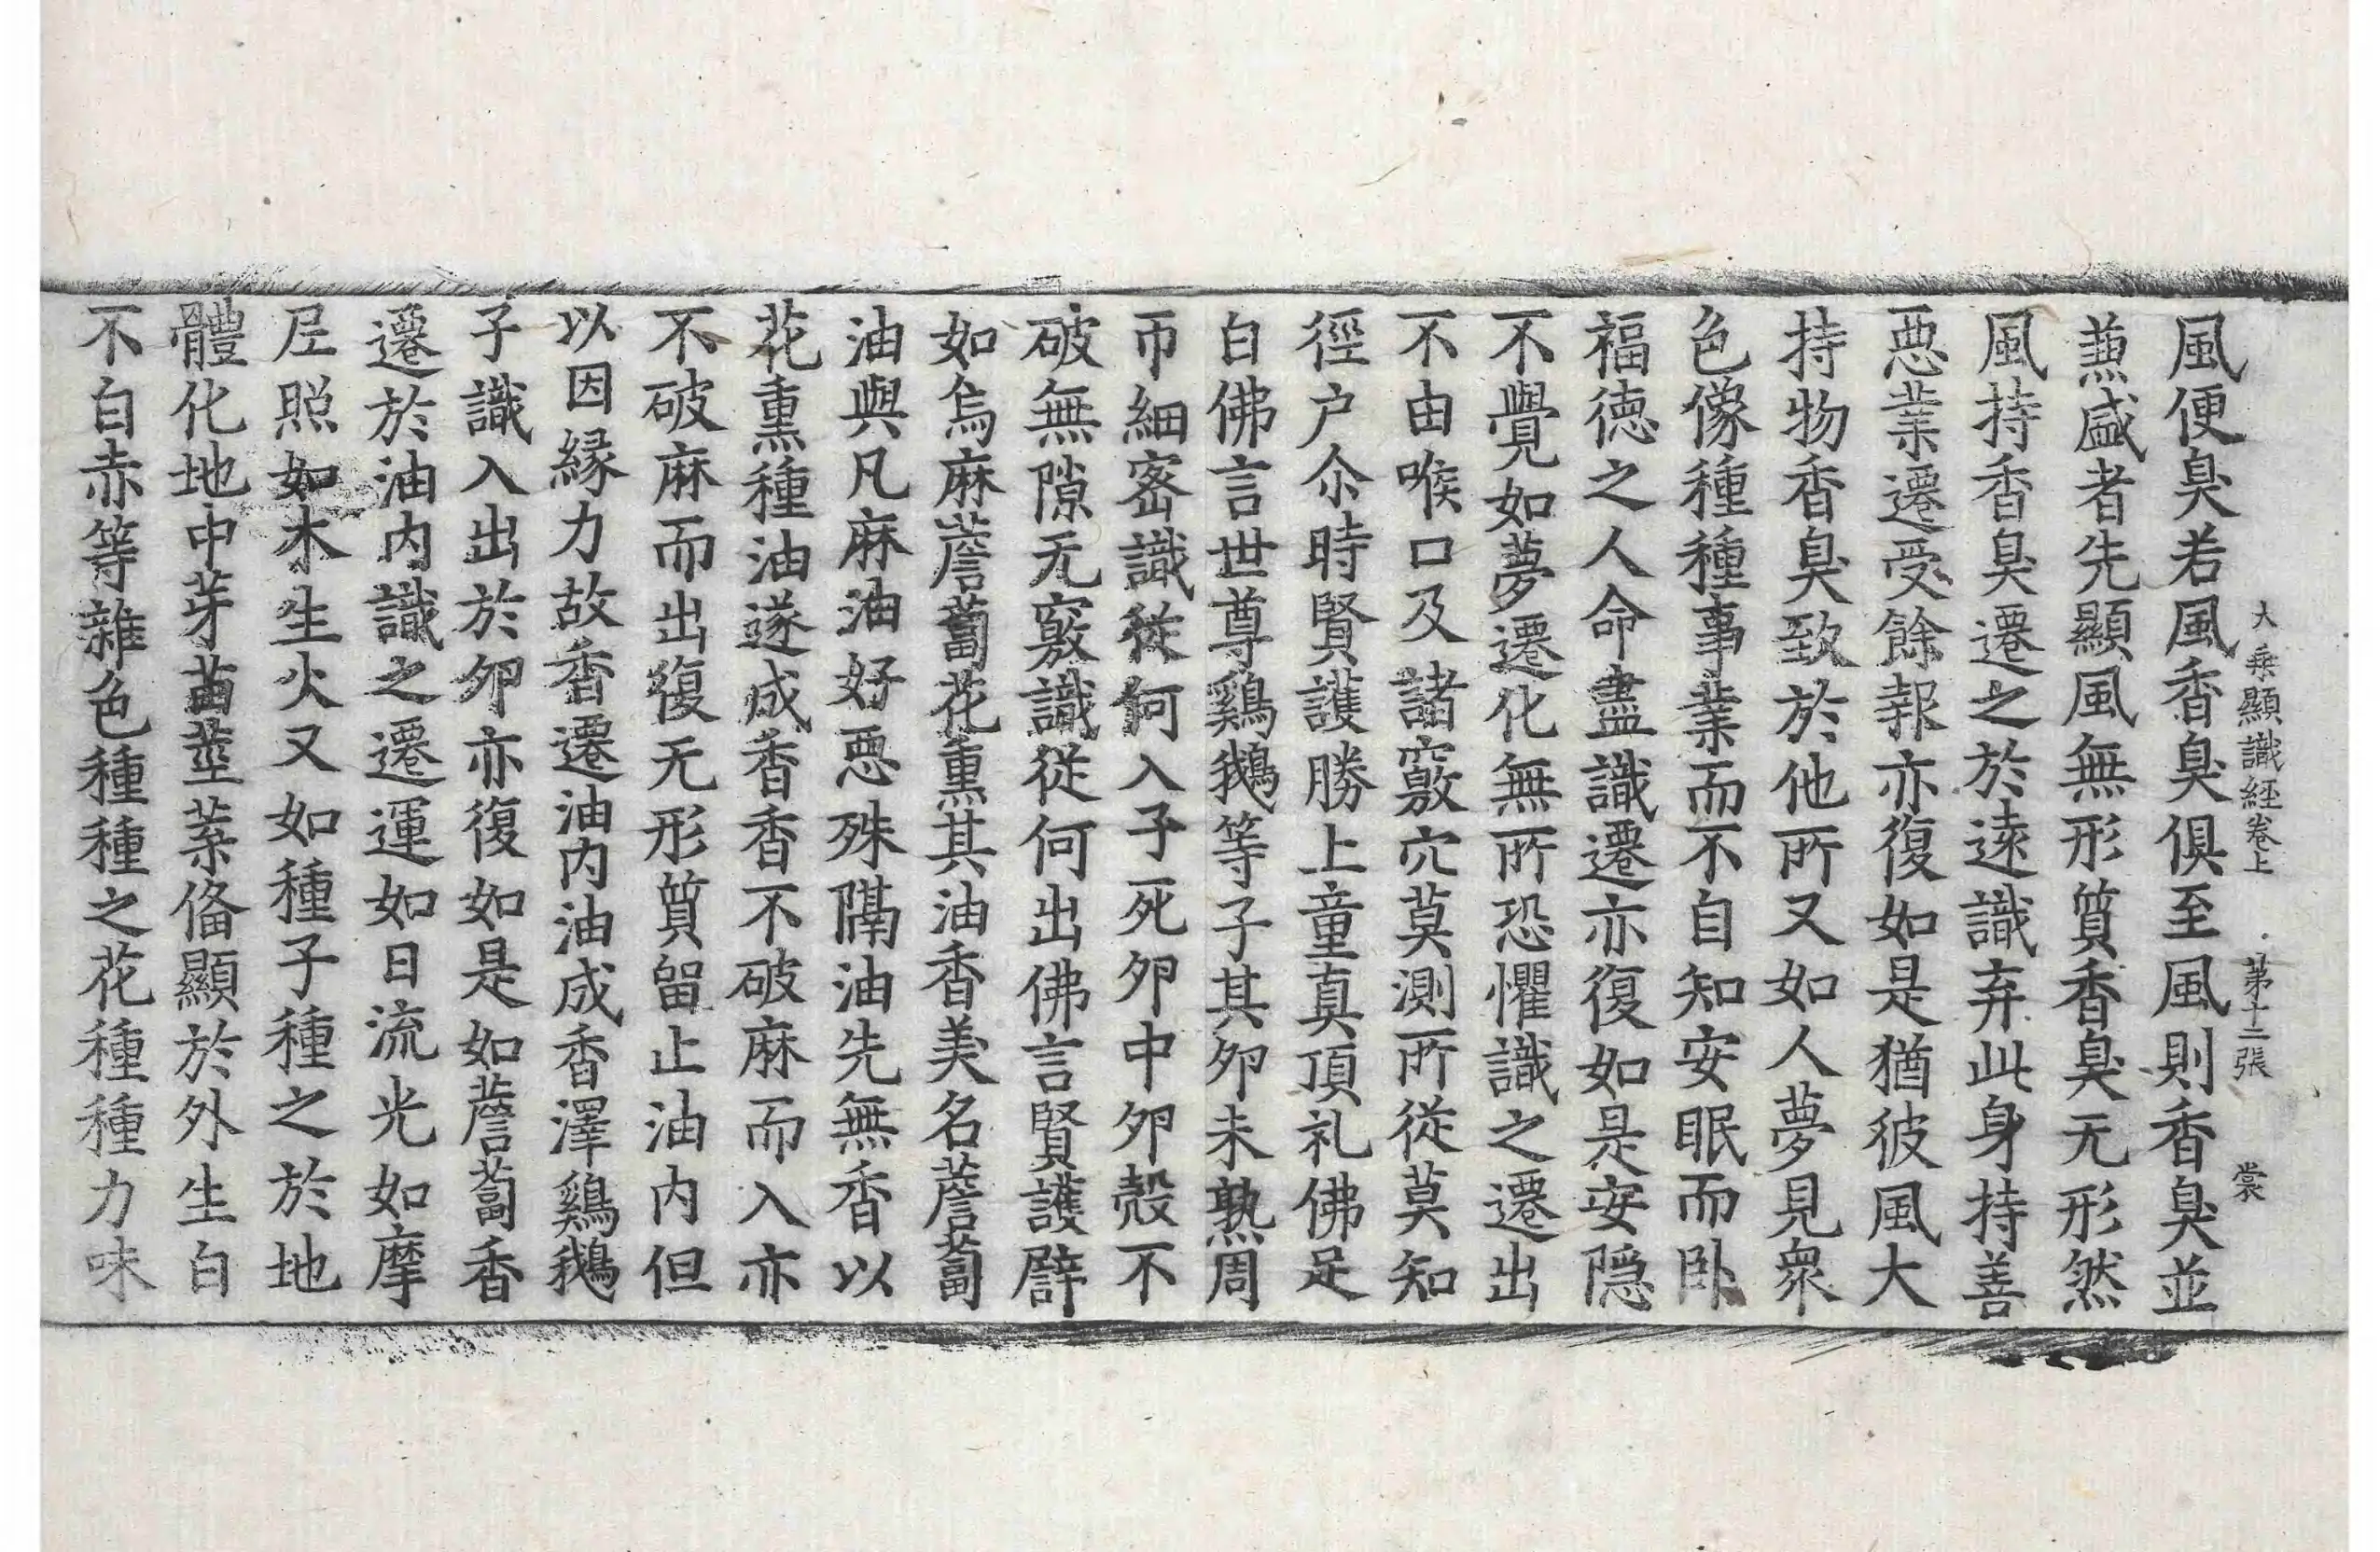 大乘顯識経卷上　第十二張　裳
風便臭若風香臭俱至風則香臭並
蕪盛者先顯風無形質香臭无形然
風持香臭遷之於遠識弃此身持善
惡業遷受餘報亦復如是猶彼風大
持物香臭致於他所又如人夢見衆
色像種種事業而不自知安眠而卧
福徳之人命盡識遷亦復如是安隠
不覺如夢遷化無所恐懼識之遷出
不由喉口及諸竅穴莫測所從莫知
徑户尒時賢護勝上童真頂礼佛足
白佛言世尊鷄鵝等子其夘未熟周
帀細宻識從何入子死夘中夘殼不
破無隙无竅識從何出佛言賢護譬
如烏麻薝蔔花熏其油香美名薝蔔
油與凡麻油好惡殊隔油先無香以
花熏種油遂成香香不破麻而入亦
不破麻而出復无形質留止油内但
以因縁力故香遷油内油成香澤鷄鵝
子識入出於夘亦復如是如薝蔔香
遷於油内識之遷運如日流光如摩
尼照如木生火又如種子種之於地
體化地中芽苗莖葉俻顯於外生白
不白赤等雜色種種之花種種力味